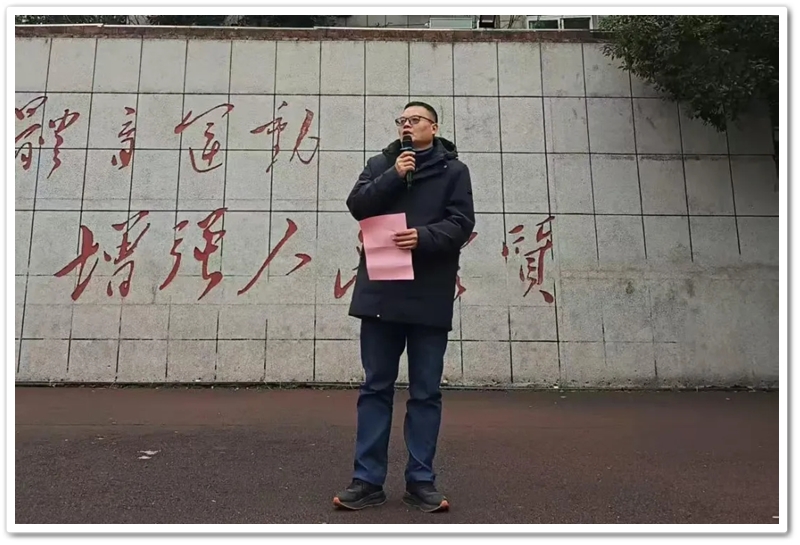 體育運動
增强人 質